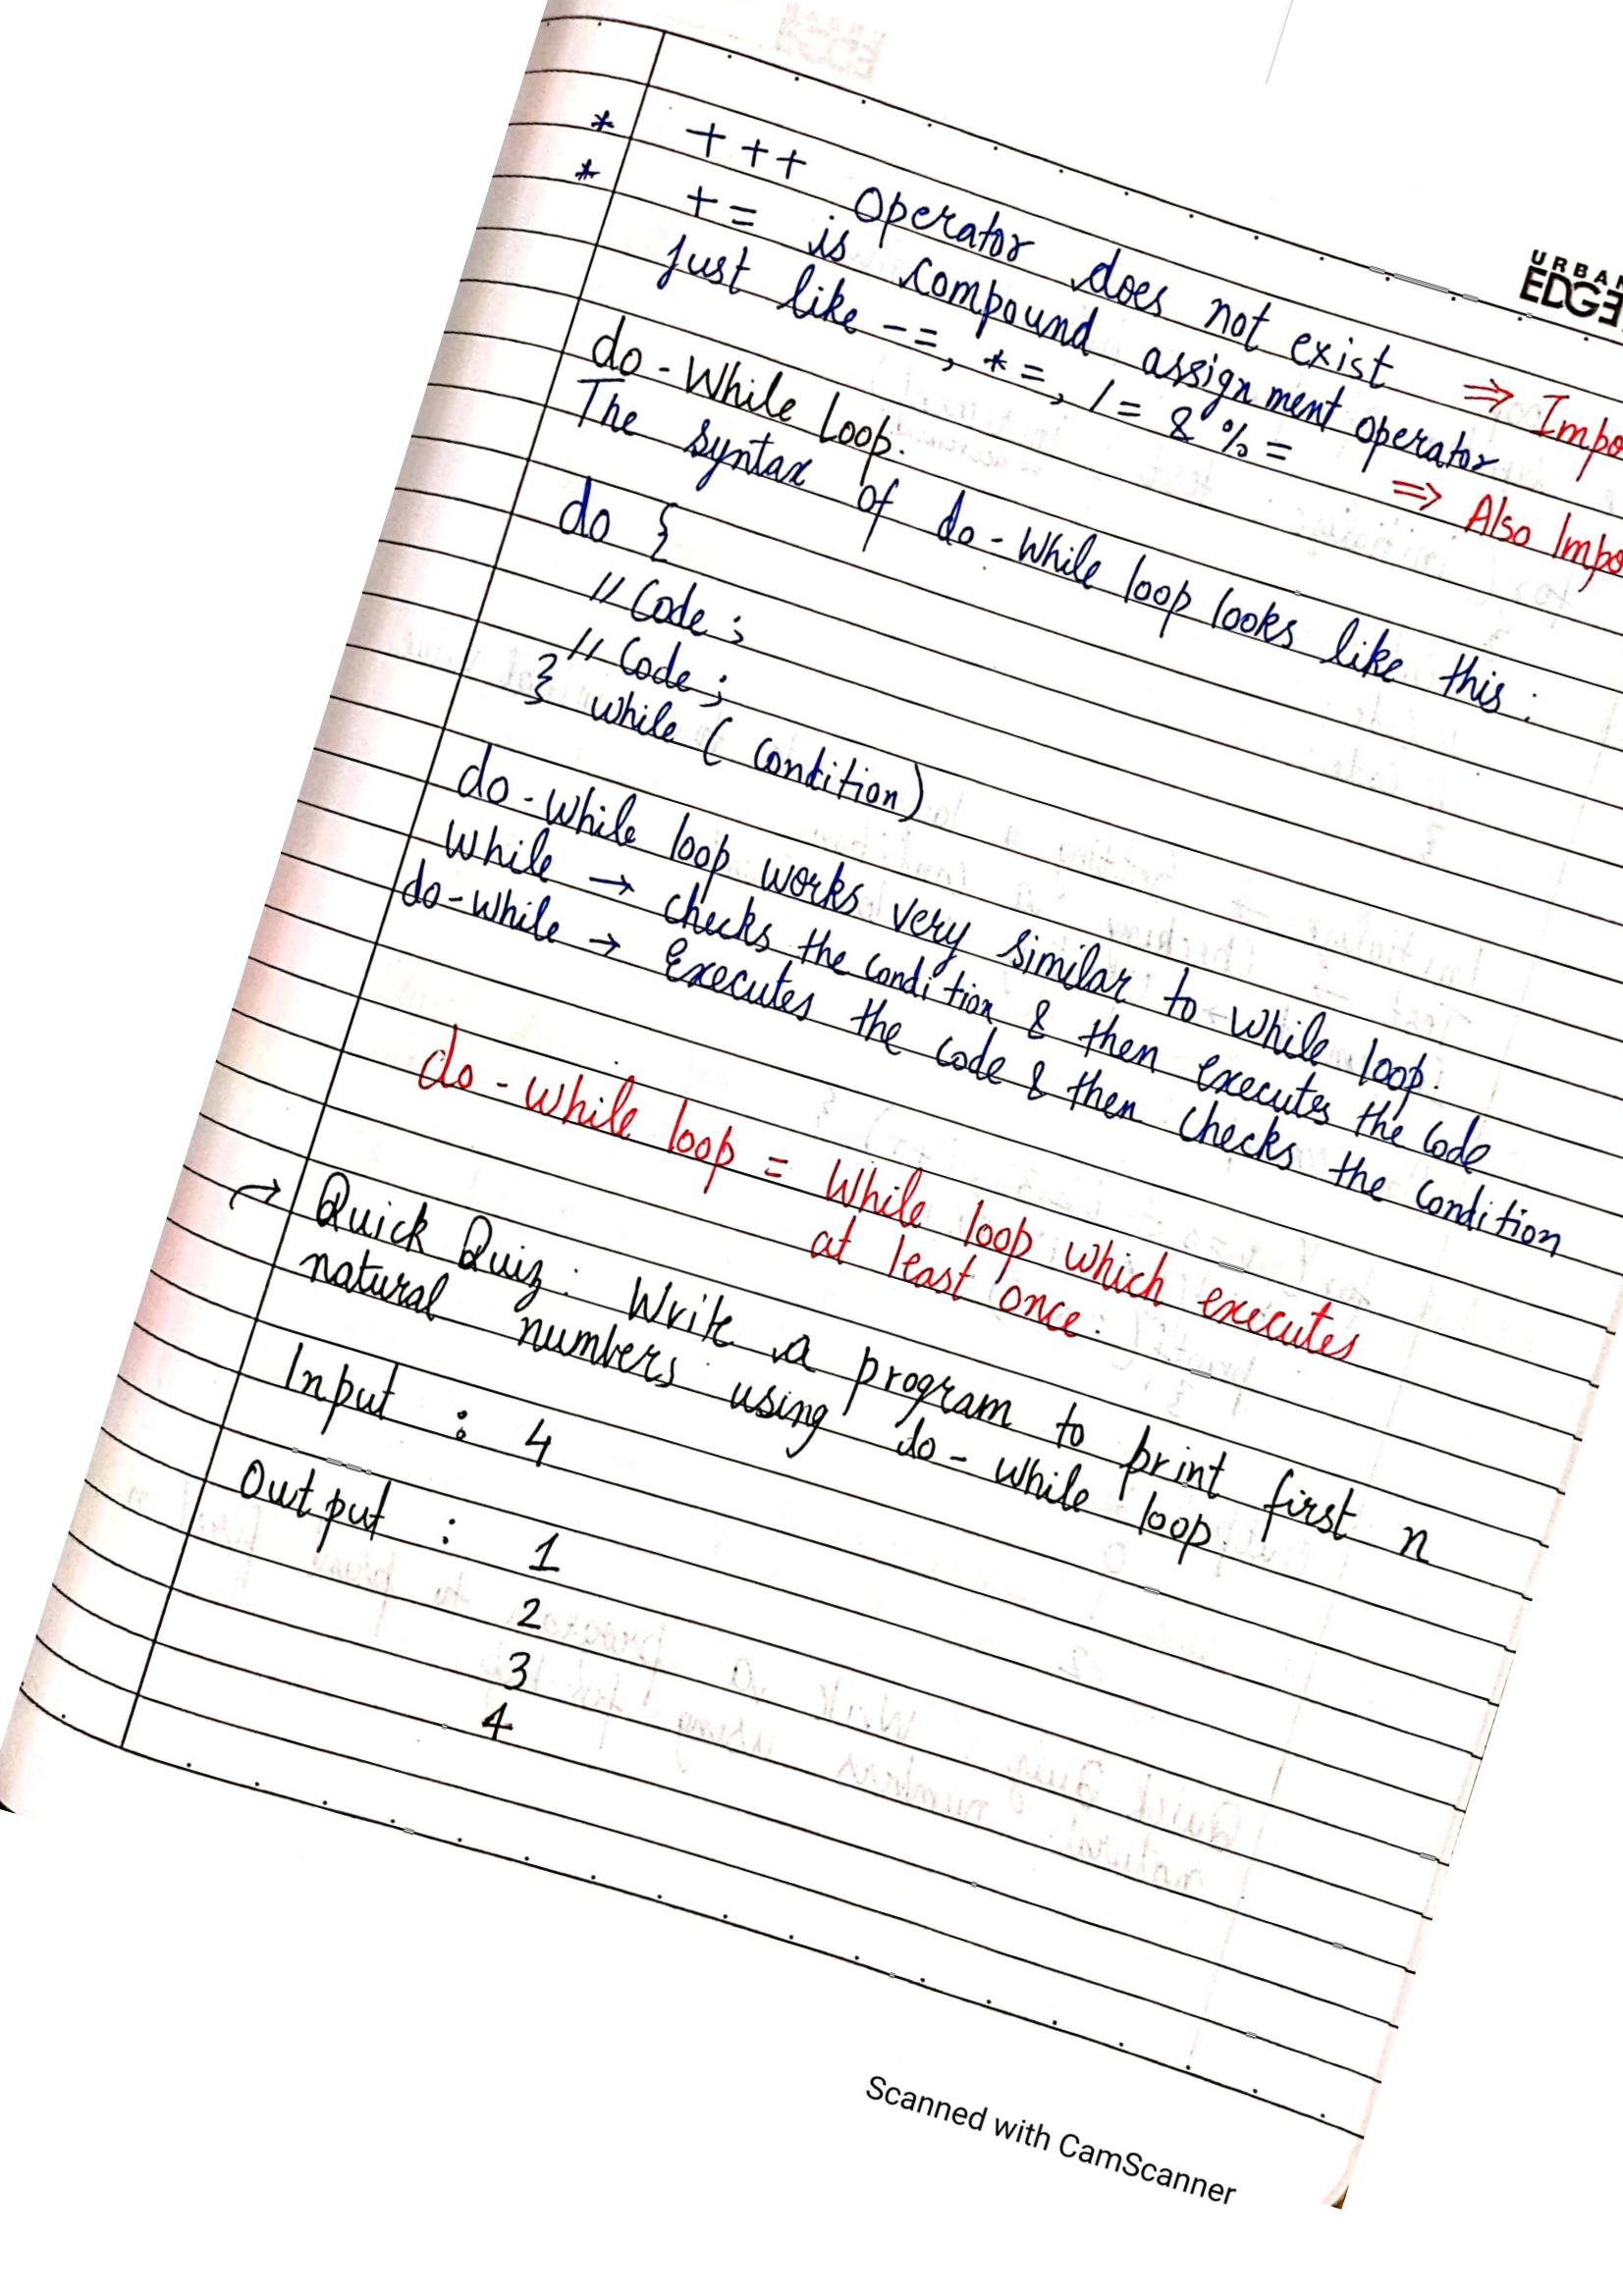 URBAN
EDGE
* +++ Operator does not exist ⇒
* += is compound assignment operator
just like -=, *=, /= & %= ⇒ Also
do-While Loop.
The syntax of do-while loop looks like this :
do {
// Code ;
// Code ;
} while ( Condition)
do-while loop works very similar to while loop.
While → checks the condition & then executes the code
do-while → Executes the code & then checks the condition
do-while loop = While loop which executes
at least once.
→ Quick Quiz : Write a program to print first n
natural numbers using do-while loop.
Input : 4
Output : 1
2
3
4
Scanned with CamScanner